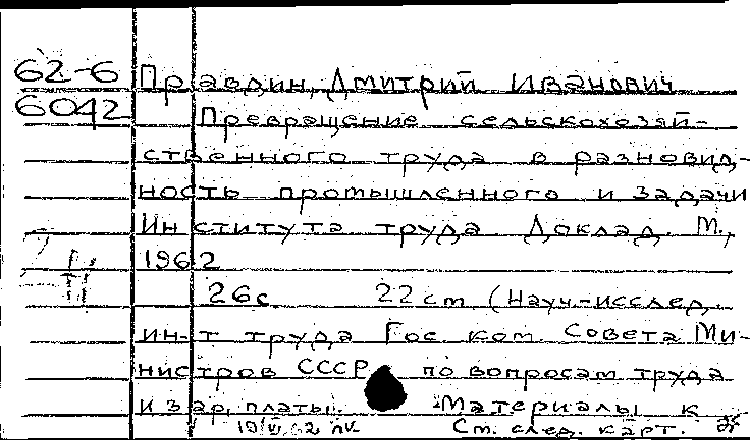 62-6 Правдин, Дмитрий Иванович
6042 Превращение сельскохозяй-
ственного труда в разновид-
ность промышленного и задачи
Института труда. Доклад. М.,
1962
26 с. 22 см (Науч.-исслед.
ин-т труда Гос. ком. Совета Ми-
нистров СССР по вопросам труда
и зар. платы. Материалы к
См. след. карт.